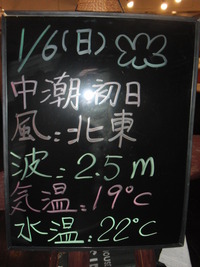 1/6(日)
中潮初日
風:北東
波:2.5m
気温:19℃
水温:22℃